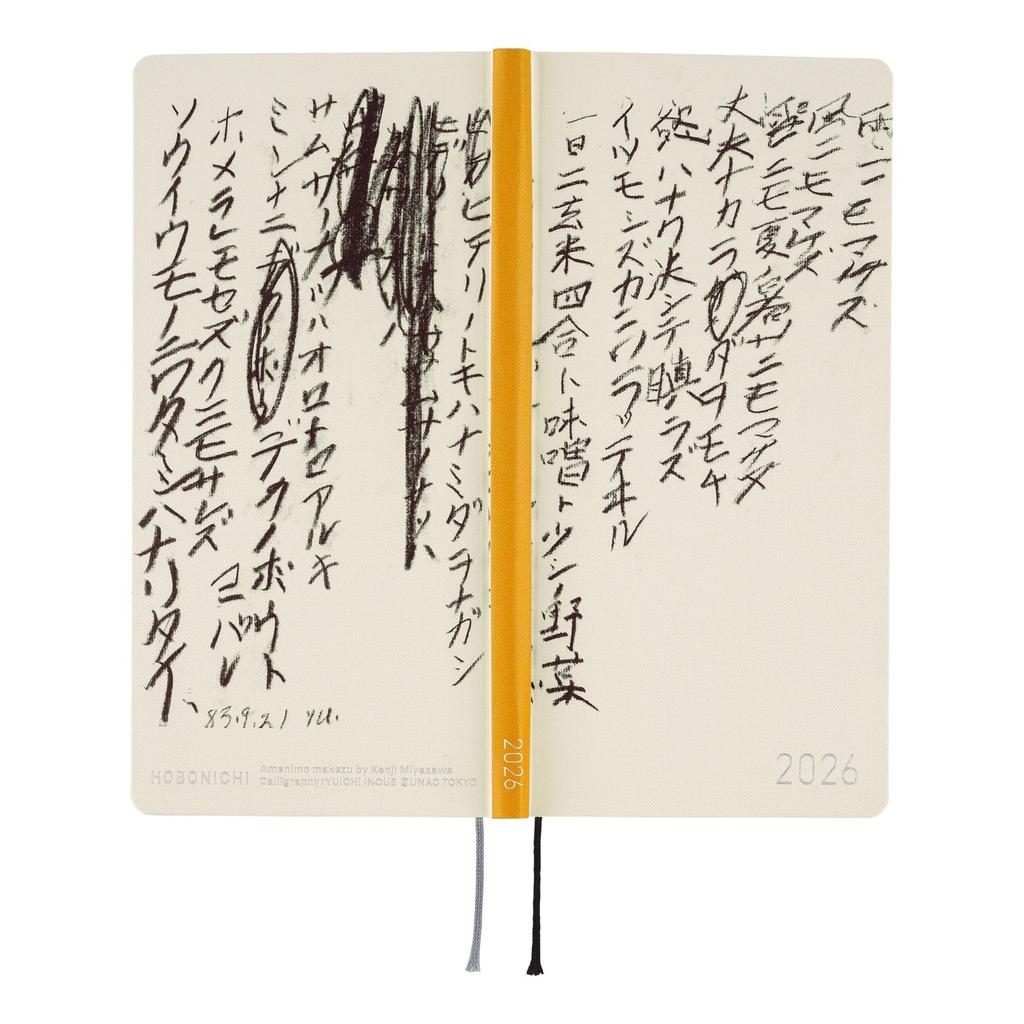 雨ニモマケズ
風ニモマケズ
雪ニモ夏ノ暑サニモマケヌ
丈夫ナカラダヲモチ
慾ハナク決シテ瞋ラズ
イツモシズカニワラッテヰル
一日ニ玄米四合ト味噌ト少シノ野菜
ヒデリノトキハナミダヲナガシ
サムサノナツハオロオロアルキ
ミンナニデクノボウト
ホメラレモセズクニモサレズ
ヨバレ
ソウイウモノニワタシハナリタイ
83.9.21 YU.
2026
2026
HOBONICHI
Amenimo makezu by Kenji Miyazawa
Calligraphy:YUICHI INOUE ©UNAC TOKYO